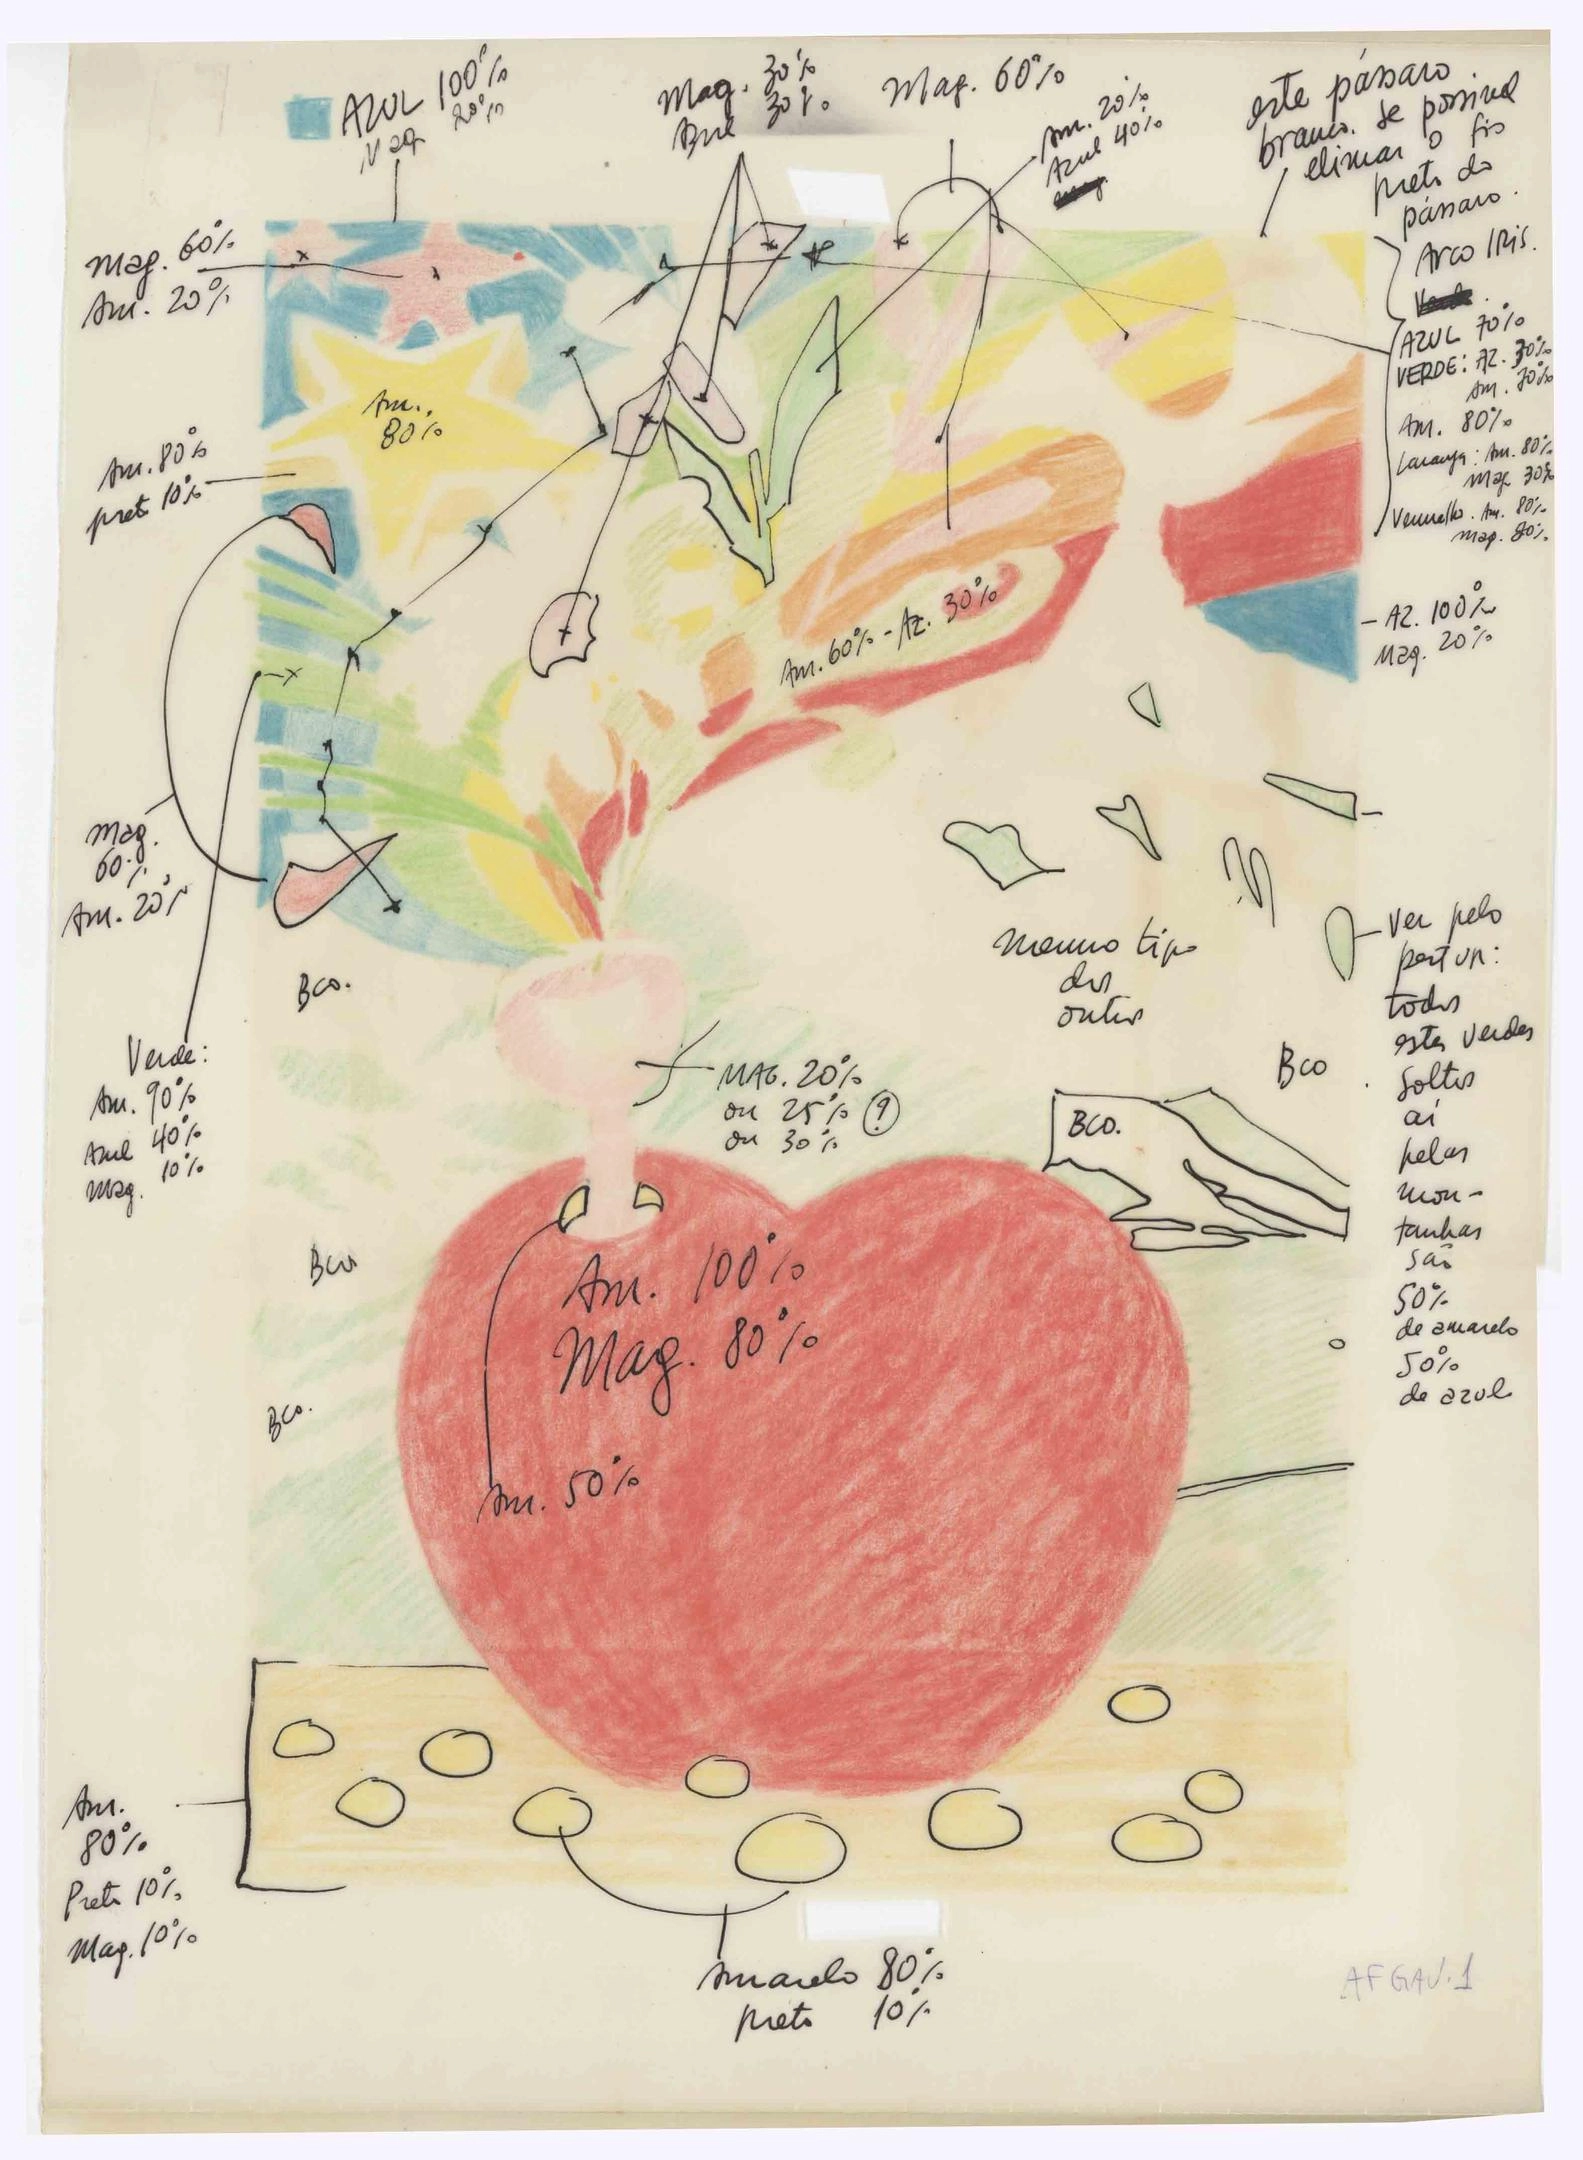 AZUL 100%
Mag 20%
Mag. 30%
Azul 30%
Mag. 60%
Am. 20%
Azul 40%
este pássaro
branco. se possível
elimar o fio
preto do
pássaro.
Mag. 60%
Am. 20%
Arco IRis.
AZUL 70%
VERDE: AZ. 30%
Am. 70%
Am. 80%
Laranja: Am. 80%
Mag 30%
Vermelho. Am. 80%
Mag. 80%
Am.
80%
Am. 80%
preto 10%
Am. 60% - Az. 30%
- AZ. 100%
Mag. 20%
Mag.
60%
Am. 20%
mesmo tipo
dos
outros
Ver pelo
todos
estes verdes
soltos
aí
pelas
mon-
tanhas
são
50%
de amarelo
50%
de azul
Bco.
Verde:
Am. 90%
Azul 40%
Mag. 10%
MAG. 20%
ou 25% ?
ou 30%
Bco
Bco.
Bco
Am. 100%
Mag. 80%
Bco.
Am. 50%
Am.
80%
Preto 10%
Mag. 10%
Amarelo 80%
preto 10%
AFGAU.1